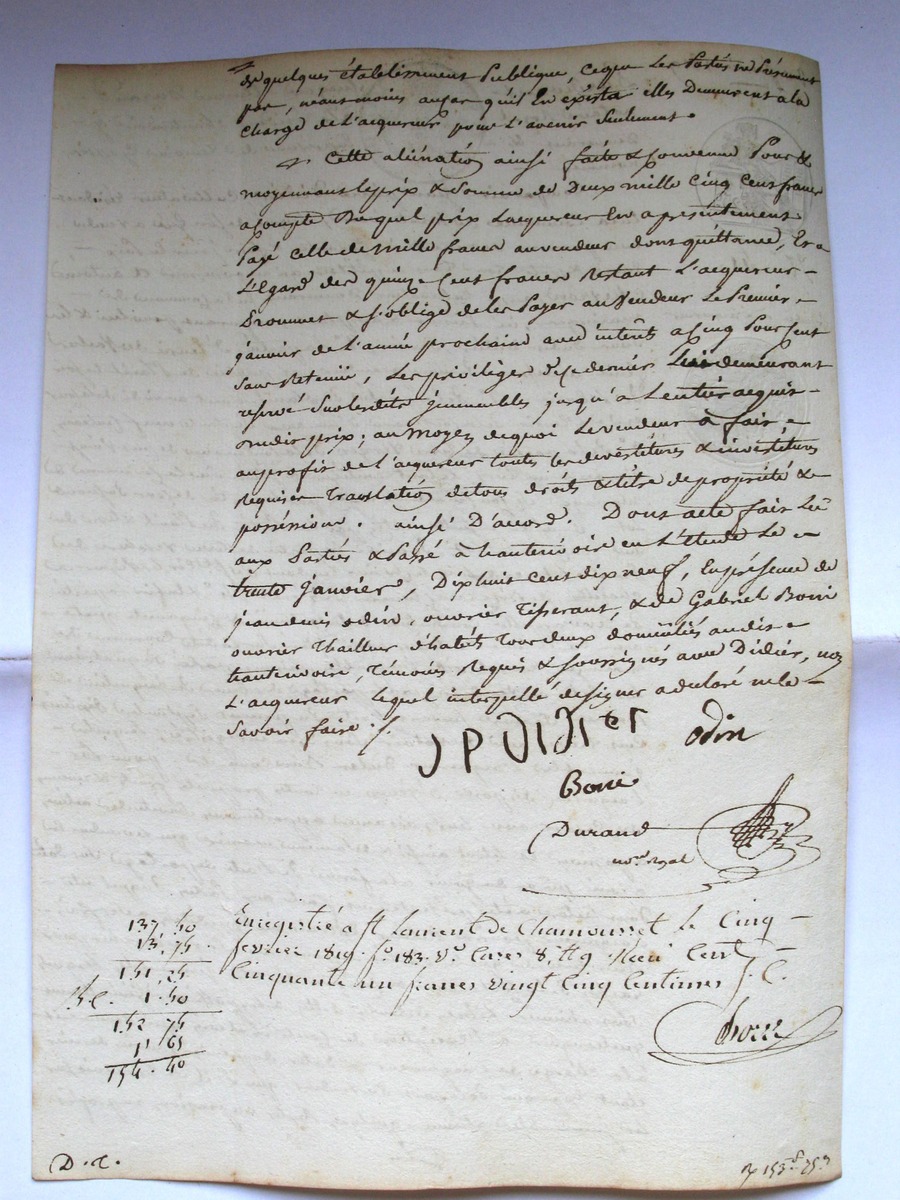 de quelques établissement Publique, ceque les Partiés ne Présument
pas, néant moins aucas qu'il En exista elles Demeurent ala
charge de L'acquereur pour L'avenir Seulement.
Cette aliénation ainsi faite & convenue Pour &
moyennant le prix & Somme de Deux mille Cinq Cent francs
acompte Duquel prix Lacquereur En a présentement
Payé celle de mille francs au vendeur dont quittance, Et a
L'égard des quinze Cent francs Restant L'acquereur
Promet & s'oblige de les Payer au Vendeur Le Premier
janvier de L'année prochaine avec intérêts a Cinq Pour Cent
Sans Retenüe, Les privilèges de ce dernier Lui demeurant
reservé Sur lesdits jmmeubles jusqu'à Lentiér acquit
dudit prix; au Moyen de quoi Le vendeur à fait
au profit de L'acquereur toutes les devestitures & investitures
Requises Translation de tous droits & titre de propriété &
possession. ainsi D'accord. Dont acte fait Lû
aux Partiés & Passé à hauterivoire en L'étude Le
trente janvier, Dix huit cent dix neuf, En présence de
jean denis odin, ouvrier Tisserant, & de Gabriel Boni
ouvrier Thailleur d'habits Tous deux domiciliés audit
hauterivoire, Témoins Requis & Soussignés avec Didiér, non
L'acquereur Lequel interpellé de signer a declaré ne le
Savoir faire
J P Didier odin
Boni
Durand
no.re Royal
137.50 Enregistré a St Laurent de Chamousset le Cinq
13.75 fevrier 1819 fo. 183. Vo. Cases 8, et 9. Reçu Cent
151,25 Cinquante un francs vingt Cinq Centimes
1.50
152 75
1 65
154.40
D.
153 25